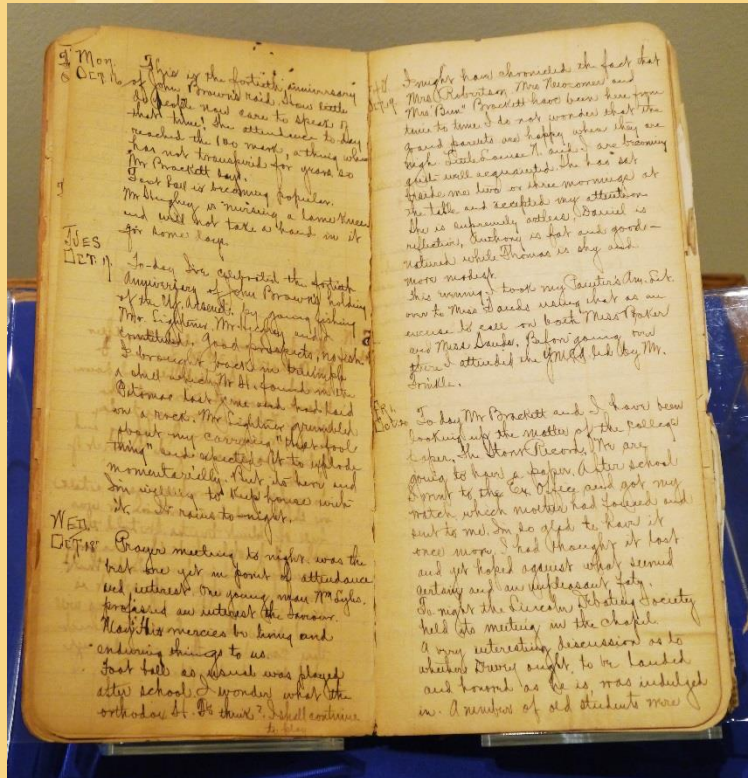 Mon. This is the fortieth anniversary
Oct 16 of John Brown's raid. How little
do people now care to speak of
that time! The attendance to-day
reached the 100 mark, a thing which
has not transpired for years so
Mr Brackett says.
Foot ball is becoming popular.
Mr Hughey is nursing a lame knee
and will not take a hand in it
for some days.
TUES
OCT. 17. To-day I've celebrated the fortieth
Anniversary of John Brown's holding
of the U.S. Arsenal, by going fishing
Mr. Lightner, Mr and I
constituted. Good prospects, no fish.
I brought back in triumph
a shell which Mr H. found in the
Potomac last and had laid
on a rock. Mr. Lightner grumbled
about my carrying "that fool
thing" and expected it to explode
momentarily. But its here and
I'm willing to keep house with
it. It rains to-night.
WED.
OCT. 18 Prayer meeting to night was the
best one yet in point of attendance
and interest. One young man Wm Syles
professed an interest the Saviour.
May his mercies be living and
enduring things to us.
Foot ball as usual was played
after school. I wonder what the
orthodox think? I shall continue
to play
Oct. 19. I might have chronicled the fact that
Mrs Robertson, Mrs Newcomer and
Mrs "Ben" Brackett have been here from
time to time. I do not wonder that the
grand parents are happy when they are
nigh. Little Louise N. and I are becoming
quite well acquainted. She has sat
beside me two or three mornings at
the table and accepted my attention
She is supremely artless. Daniel is
reflective, Anthony is fat and good-
natured while Thomas is shy and
more modest.
This evening I took my Painter's Am. Lit.
over to Miss Sands using that as an
excuse to call on both Miss Baker
and Miss Sands. Before going over
there I attended the YMCA led by Mr.
Trinkle.
FRI.
Oct. 20 To day Mr Brackett and I have been
looking up the matter of the college
paper, The Storer Record. We are
going to have a paper. After school
I went to the Ex. Office and got my
watch which mother had found and
sent to me. I'm so glad to have it
once more. I had thought it lost
and yet hoped against what seemed
certainty and an unpleasant fate.
To night the Lincoln Debating Society
held its meeting in the chapel.
A very interesting discussion as to
whether Dewey ought to be lauded
and honored as he is, was indulged
in. A number of old students were